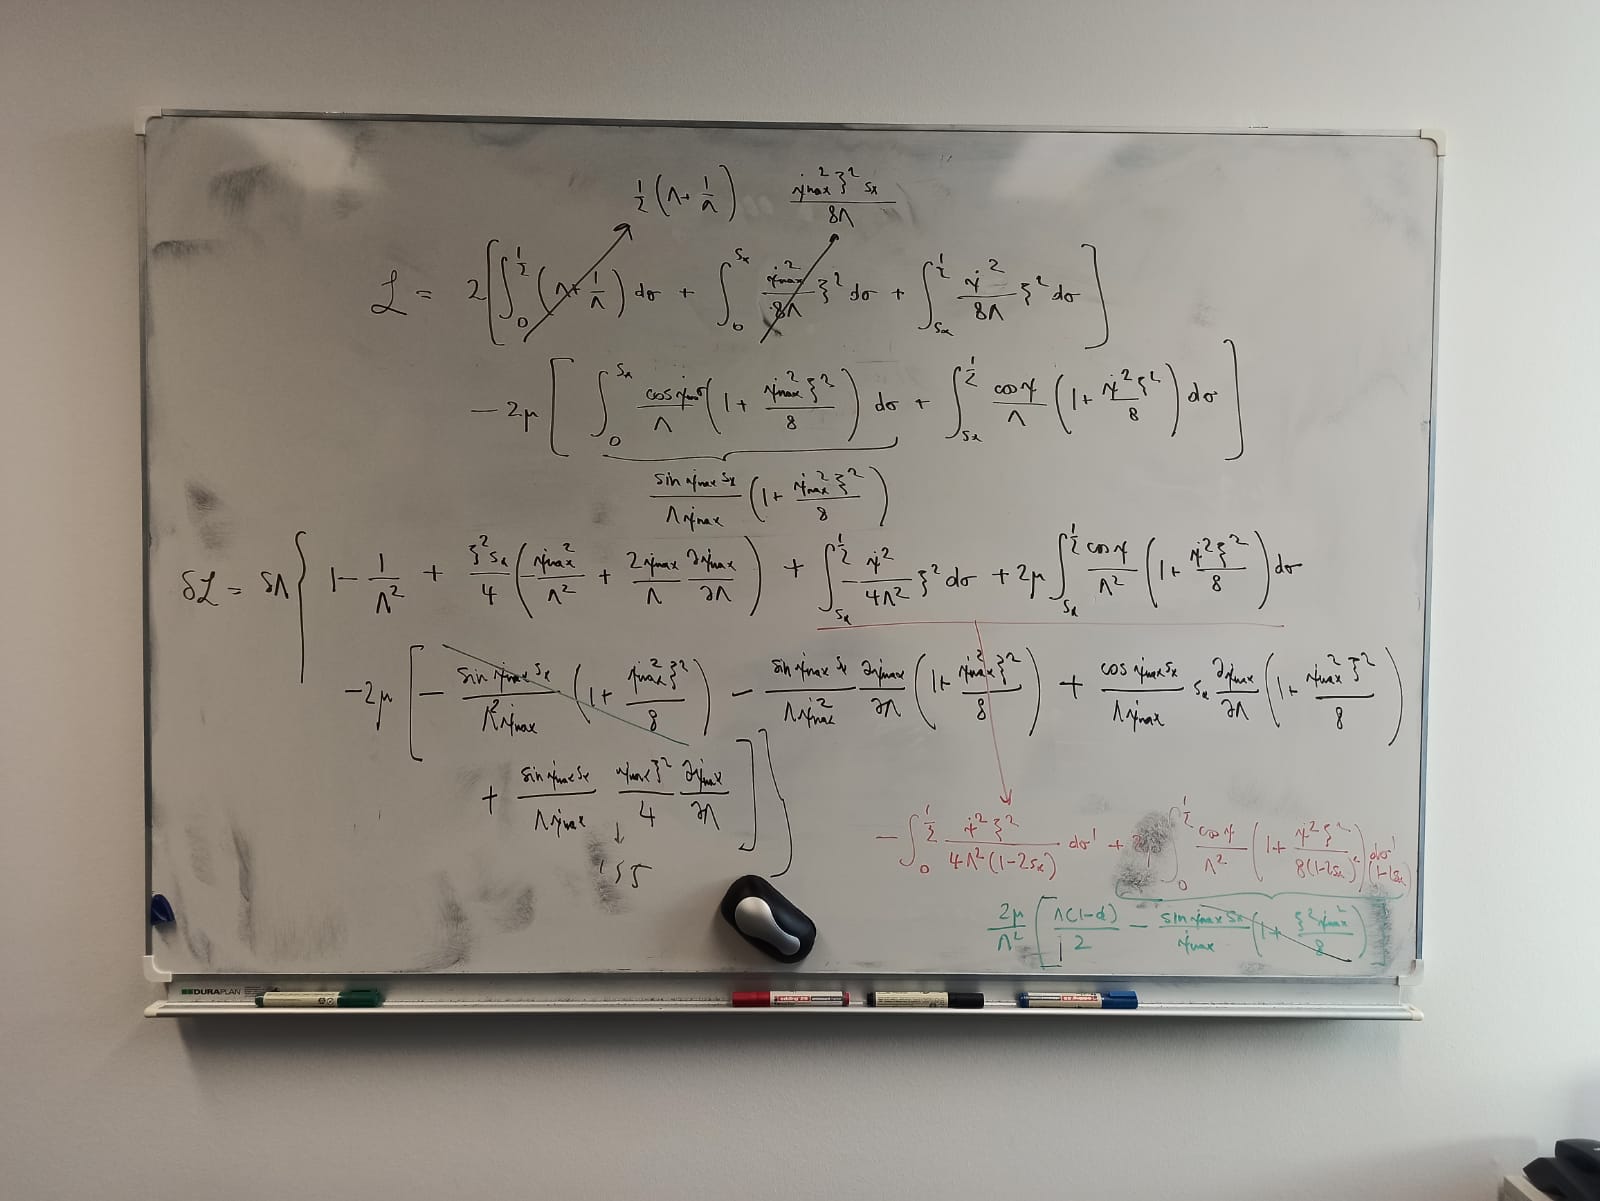 ½(Λ+1/Λ)   ψ̇max²ξ²sₓ/8Λ
ℒ = 2[∫₀^½ (Λ+1/Λ) dσ + ∫₀^sₓ ψ̇max²/8Λ ξ² dσ + ∫_sₓ^½ ψ̇²/8Λ ξ² dσ]
− 2μ[∫₀^sₓ cos ψ̇maxσ/Λ (1+ ψ̇max²ξ²/8) dσ + ∫_sₓ^½ cosψ/Λ (1+ ψ̇²ξ²/8) dσ]
sin ψ̇max sₓ/Λψ̇max (1+ ψ̇max²ξ²/8)
δℒ = δΛ{ 1− 1/Λ² + ξ²sₓ/4 (ψ̇max²/Λ² + 2ψ̇max/Λ ∂ψ̇max/∂Λ) + ∫_sₓ^½ −ψ̇²/4Λ² ξ² dσ + 2μ∫_sₓ^½ cosψ/Λ² (1+ ψ̇²ξ²/8) dσ
−2μ[− sin ψ̇max sₓ/Λ²ψ̇max (1+ ψ̇max²ξ²/8) − sin ψ̇max sₓ/Λψ̇max² ∂ψ̇max/∂Λ (1+ ψ̇max²ξ²/8) + cos ψ̇max sₓ/Λψ̇max sₓ ∂ψ̇max/∂Λ (1+ ψ̇max²ξ²/8)
+ sin ψ̇max sₓ/Λψ̇max ψ̇maxξ²/4 ∂ψ̇max/∂Λ]}
− ∫₀^½ ψ̇²ξ²/4Λ²(1−2sₓ) dσ' + ∫₀^½ cosψ/Λ² (1+ ψ̇²ξ²/8(1−2sₓ)²) dσ' (1−2sₓ)
2μ/Λ² [Λ(1−d)/2 − sin ψ̇max sₓ/ψ̇max (1+ ξ²ψ̇max²/8)]
DURAPLAN
edding
edding